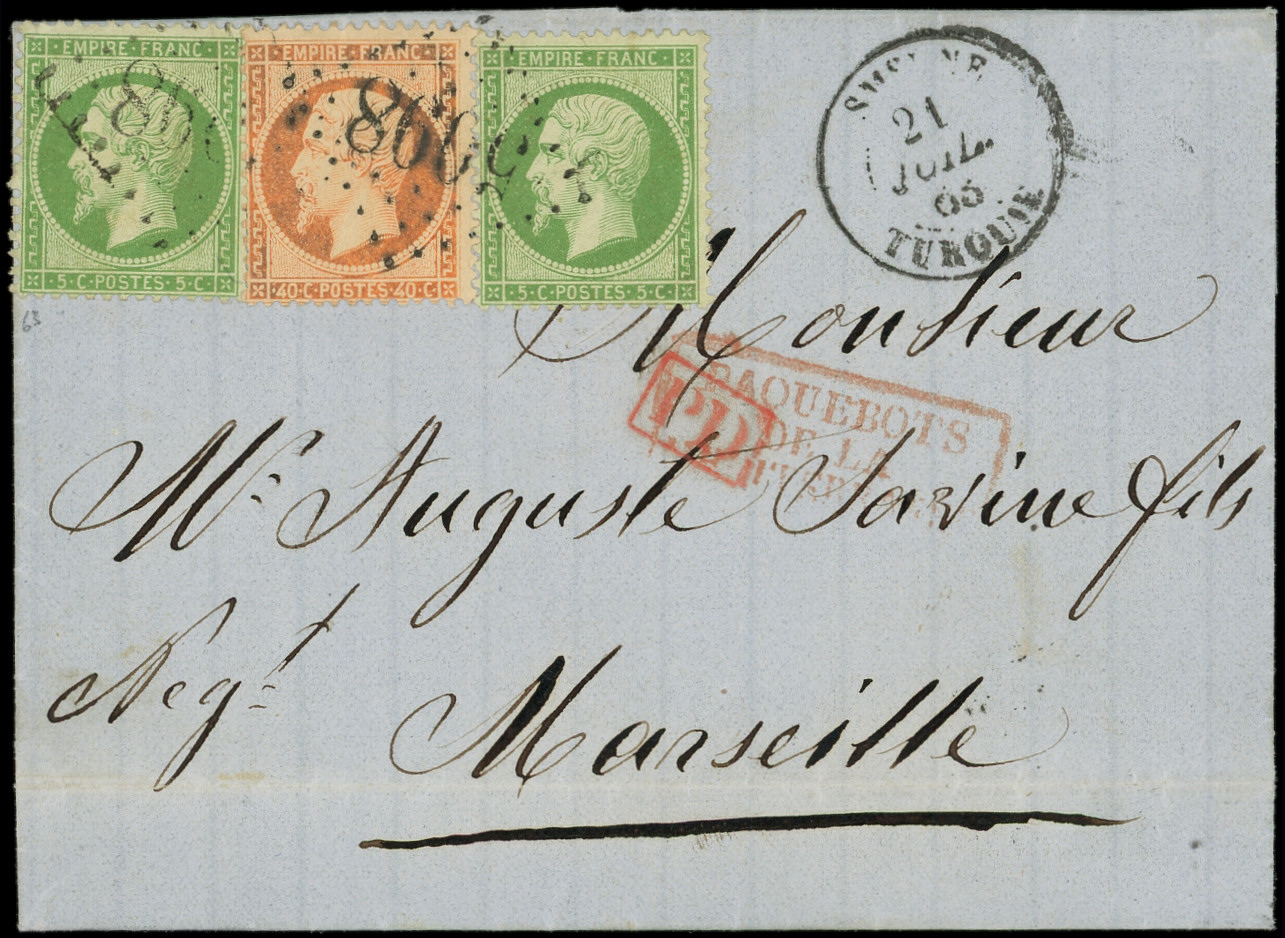 EMPIRE · FRANC
5 · C · POSTES · 5 · C
EMPIRE · FRANC
40 · C · POSTES · 40 · C
EMPIRE · FRANC
5 · C · POSTES · 5 · C
5098
SMYRNE
21
JUIL.
65
TURQUIE
63
Monsieur
PAQUEBOTS
DE LA
P.D.
Mr. Auguste Savine fils
Negt.
Marseille